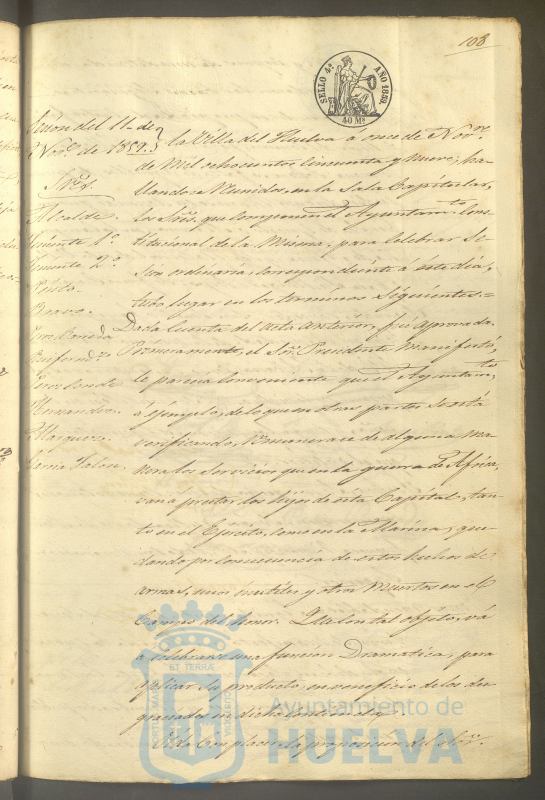 108
SELLO 4º AÑO 1859.
40 Ms
Sesion del 11. de
Nove. de 1859.
Sres.
Alcalde.
Teniente 1º
Teniente 2º
Bravo.
Perez Conde
Hernandez.
Marquez.
Garcia
la Villa del Huelva á once de Nove.
de Mil ochocientos Cincuenta y Nueve, ha-
llandose Reunidos, en la Sala Capitular,
los Sres. que componen el Ayuntamto. Cons-
titucional de la Misma, para celebrar Se-
sion ordinaria, correspondiente á este dia,
tubo lugar en los terminos Siguientes.=
Dada Cuenta del acta anterior, fué aprovada.
el Sor. Presidente Manifestó,
le parecia Conveniente que el Ayuntamto.
á ejemplo, de lo que en otras partes se está
verificando, Remunerase de alguna ma-
nera los Servicios que en la guerra de Africa,
van á prestar los hijos de esta Capital, tan-
to en el Ejercito, como en la Marina, que-
dando por consecuencia de estos hechos de
armas, unos inutiles y otros Muertos en el
Campo del honor. Que con tal objeto, vá
á celebrarse una funcion Dramatica, para
aplicar su producto, en beneficio de los des-
graciados en dicha
la proposicion del Sor.
PORTUS MARIS ET TERRÆ CUSTODIA
Ayuntamiento de
HUELVA